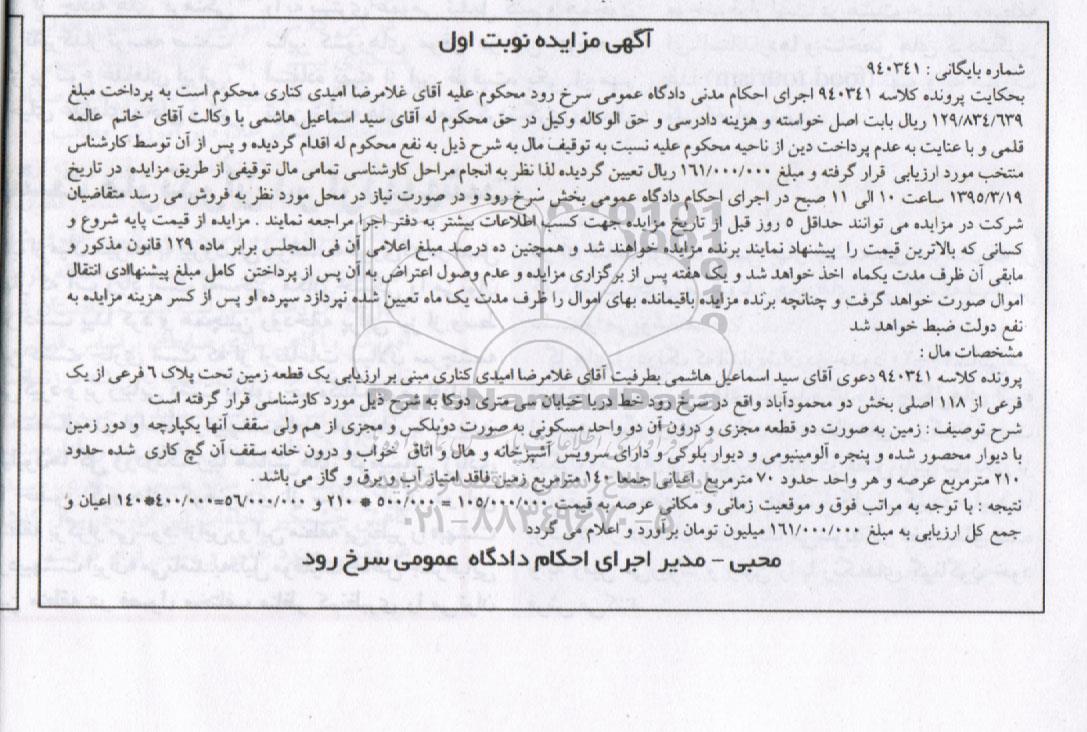 آگهی مزایده نوبت اول
شماره بایگانی : ۹۴۰۳۴۱
بحکایت پرونده کلاسه ۹۴۰۳۴۱ اجرای احکام مدنی دادگاه عمومی سرخ رود محکوم علیه آقای غلامرضا امیدی کناری محکوم است به پرداخت مبلغ
۱۲۹/۸۳۴/۶۳۹ ریال بابت اصل خواسته و هزینه دادرسی و حق الوکاله وکیل در حق محکوم له آقای سید اسماعیل هاشمی با وکالت آقای خاتم عالمه
قلمی و با عنایت به عدم پرداخت دین از ناحیه محکوم علیه نسبت به توقیف مال به شرح ذیل به نفع محکوم له اقدام گردیده و پس از آن توسط کارشناس
منتخب مورد ارزیابی قرار گرفته و مبلغ ۱۶۱/۰۰۰/۰۰۰ ریال تعیین گردیده لذا نظر به انجام مراحل کارشناسی تمامی مال توقیفی از طریق مزایده در تاریخ
۱۳۹۵/۳/۱۹ ساعت ۱۰ الی ۱۱ صبح در اجرای احکام دادگاه عمومی بخش سرخ رود و در صورت نیاز در محل مورد نظر به فروش می رسد متقاضیان
شرکت در مزایده می توانند حداقل ۵ روز قبل از تاریخ مزایده جهت کسب اطلاعات بیشتر به دفتر اجرا مراجعه نمایند . مزایده از قیمت پایه شروع و
کسانی که بالاترین قیمت را پیشنهاد نمایند برنده مزایده خواهند شد و همچنین ده درصد مبلغ اعلامی آن فی المجلس برابر ماده ۱۲۹ قانون مذکور و
مابقی آن ظرف مدت یکماه اخذ خواهد شد و یک هفته پس از برگزاری مزایده و عدم وصول اعتراض به آن پس از پرداختن کامل مبلغ پیشنهاادی انتقال
اموال صورت خواهد گرفت و چنانچه برنده مزایده باقیمانده بهای اموال را ظرف مدت یک ماه تعیین شده نپردازد سپرده او پس از کسر هزینه مزایده به
نفع دولت ضبط خواهد شد
مشخصات مال :
پرونده کلاسه ۹۴۰۳۴۱ دعوی آقای سید اسماعیل هاشمی بطرفیت آقای غلامرضا امیدی کناری مبنی بر ارزیابی یک قطعه زمین تحت پلاک ۶ فرعی از یک
فرعی از ۱۱۸ اصلی بخش دو محمودآباد واقع در سرخ رود خط دریا خیابان میر متری دوکا به شرح ذیل مورد کارشناسی قرار گرفته است
شرح توصیف : زمین به صورت دو قطعه مجزی و درون آن دو واحد مسکونی به صورت دوپلکس و مجزی از هم ولی سقف آنها یکپارچه و دور زمین
با دیوار محصور شده و پنجره آلومینیومی و دیوار بلوکی و دارای سرویس آشپزخانه و هال و اتاق خواب و درون خانه سقف آن گچ کاری شده حدود
۲۱۰ مترمربع عرصه و هر واحد حدود ۷۰ مترمربع اعیانی جمعا ۱۴۰ مترمربع زمین فاقد امتیاز آب و برق و گاز می باشد.
نتیجه : با توجه به مراتب فوق و موقعیت زمانی و مکانی عرصه به قیمت ۱۰۵/۰۰۰/۰۰۰ = ۵۰۰/۰۰۰ * ۲۱۰ و ۵۶/۰۰۰/۰۰۰=۴۰۰/۰۰۰*۱۴۰ اعیان و
جمع کل ارزیابی به مبلغ ۱۶۱/۰۰۰/۰۰۰ میلیون تومان برآورد و اعلام می گردد
محبی - مدیر اجرای احکام دادگاه عمومی سرخ رود
ParsNamadData
۰۲۱-۸۸۳۴۹۶۷۰-۵